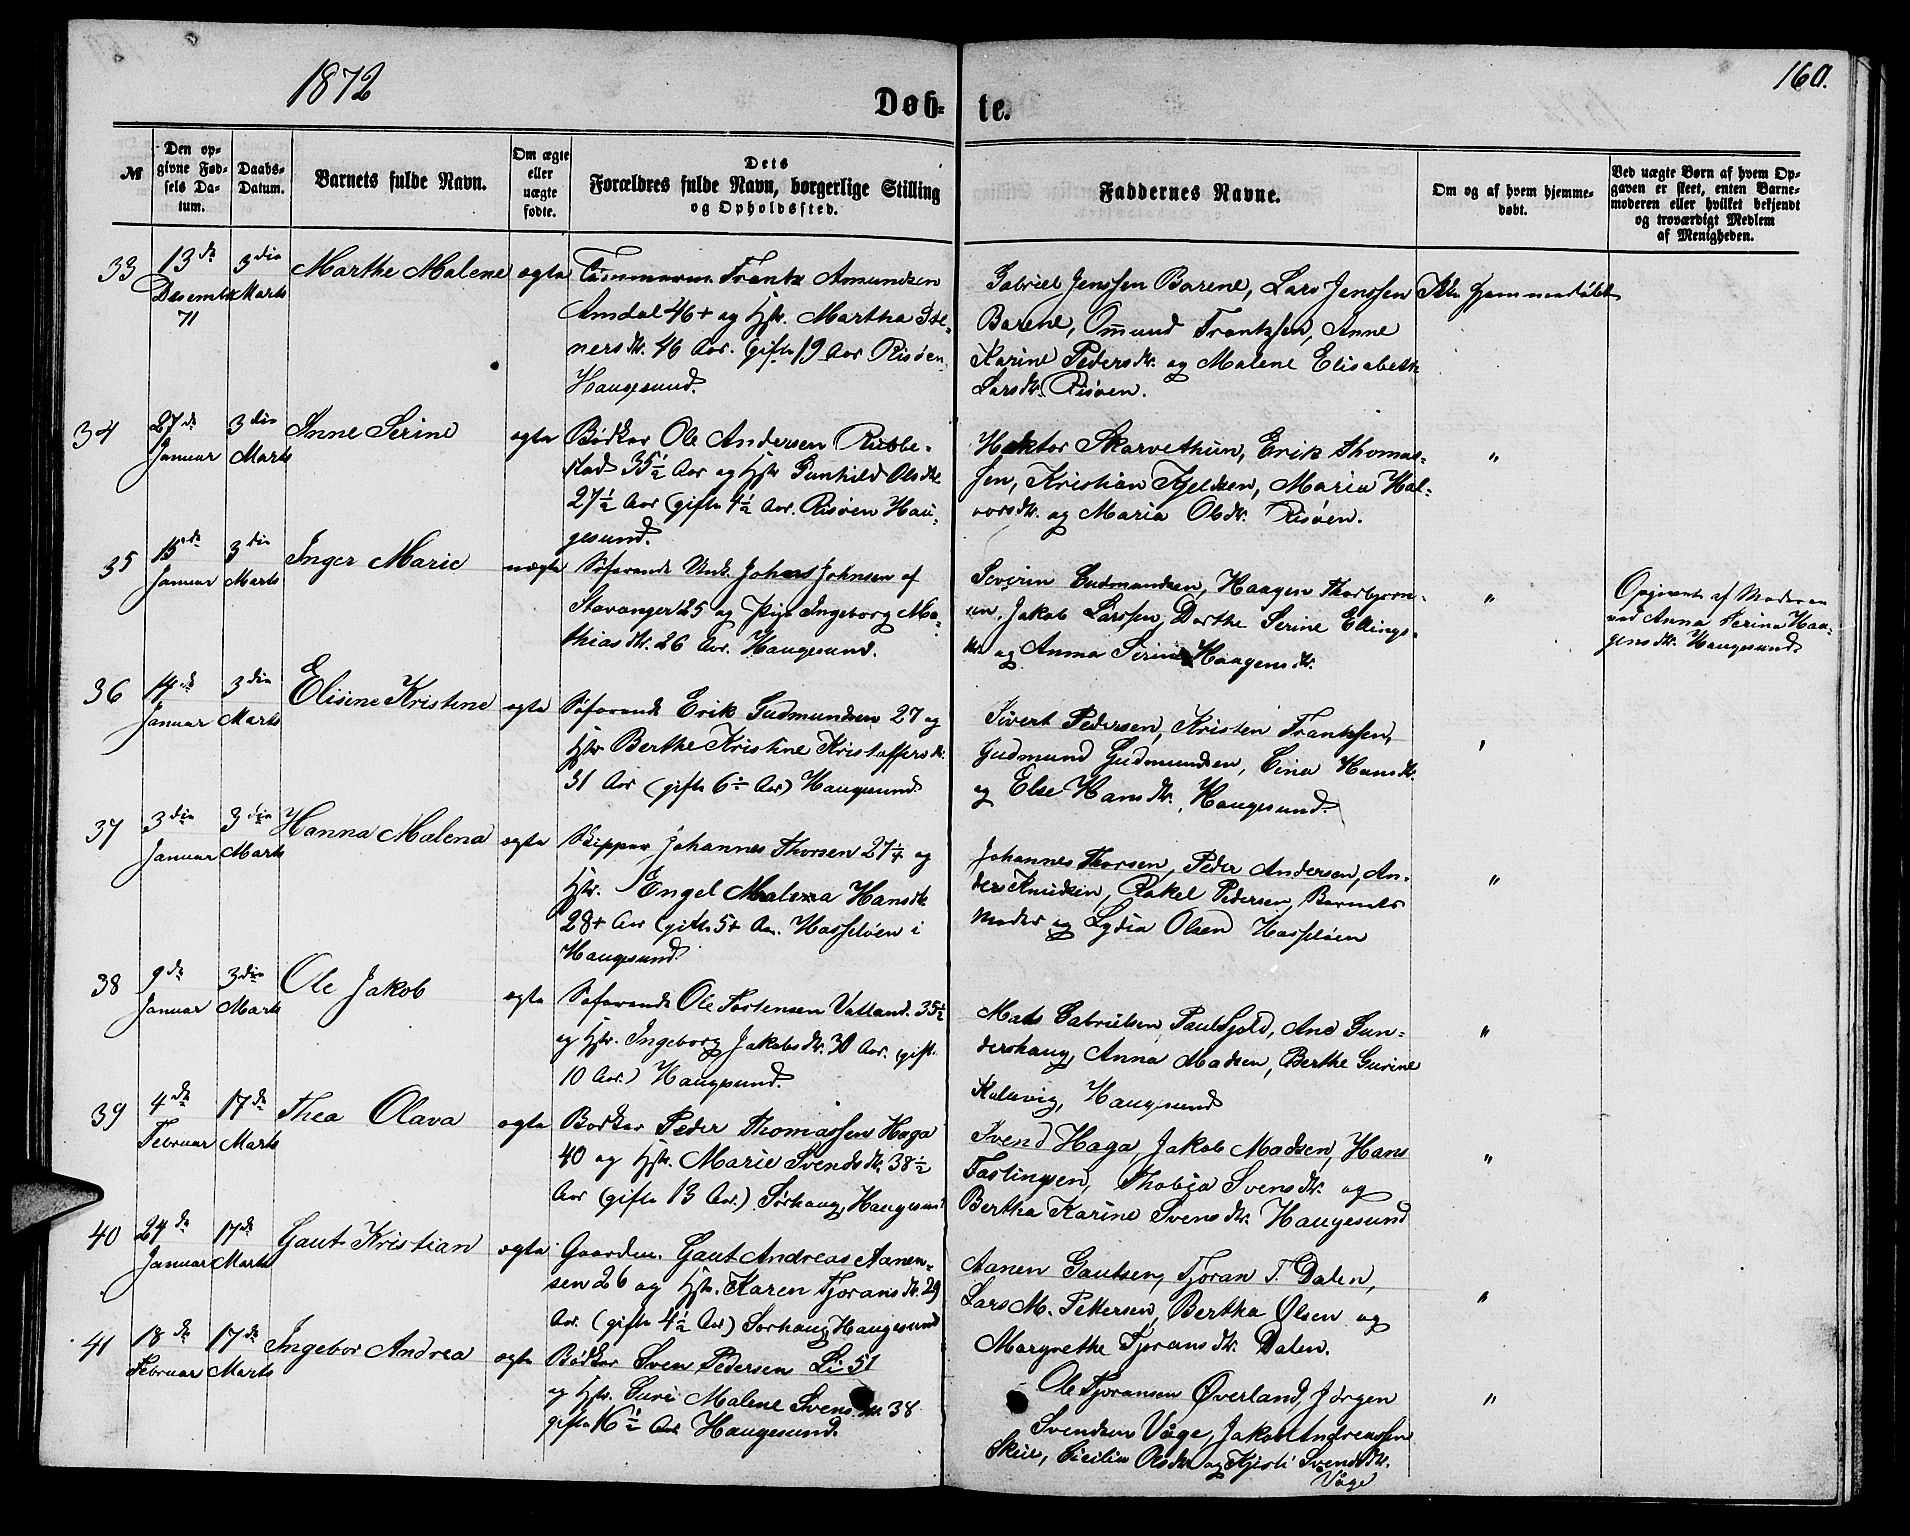 1872
Døb-
te.
160.
№
Den op-
givne Fød-
sels Da-
tum.
Daabs-
Datum.
Barnets fulde Navn.
Om ægte
eller
uægte
fødte.
Dets
Forældres fulde Navn, borgerlige Stilling
og Opholdssted.
Faddernes Navne.
Om og af hvem hjemme-
døbt.
Ved uægte Børn af hvem Op-
gaven er skeet, enten Barne-
moderen eller hvilket bekjendt
og troværdigt Medlem
af Menigheden.
33
13de
Desember
71
3die
Marts
Marthe Malene
ægte
Tømmerm. Frantz Amundsen
Amdal 46+ og Hstr. Martha
nersdtr. 46 Aar. (gifte 19 Aar Risøen
Haugesund.
Gabriel Jenssen Barene, Lars Jenssen
Barene, Omund Frantzsen, Anne
Karine Pedersdtr. og Malene Elisabeth
Larsdtr. Risøen.
Ikke hjemmedøbt
34
27de
Januar
3die
Marts
Anne Serine
ægte
Bødker Ole Andersen
stad 35½ Aar og Hstr. Gunhild Olsdtr.
27½ Aar (gifte 4½ Aar. Risøen Hau-
gesund.
Hektor Skarvethun, Erik Thomas-
sen, Kristian Kjeldsen, Maria Hal-
vorsdtr. og Maria Olsdtr. Risøen.
"
35
15de
Januar
3die
Marts
Inger Marie
uægte
Søfarende Unk. Johans Johnsen af
Stavanger 25 og Pige Ingeborg Ma-
thiasdtr. 26 Aar. Haugesund.
Severin Gudmundsen, Haagen Thorbjørn-
sen, Jakob Larssen, Dorthe Serine Ellings-
dtr. og Anna Serine Haagensdtr.
"
Opgivet af Moderen
ved Anna Serina Haa-
gensdtr. Haugesund.
36
14de
Januar
3die
Marts
Elisine Kristine
ægte
Søfarende Erik Gudmundsen 27 og
Hstr. Berthe Kristine Kristoffersdtr.
31 Aar (gifte 6 Aar) Haugesund.
Sivert Pedersen, Kristen Frantzsen,
Gudmund Gudmundsen, Hansdtr.
og Else Hansdtr., Haugesund.
37
3die
Januar
3die
Marts
Hanna Malena
ægte
Skipper Johannes Thorsen 27¼ og
Hstr. Engel Malena Hansdtr.
28+ Aar (gifte 5+ Aar. Hasseløen i
Haugesund.
Johannes Thorsen, Peder Andersen, An-
ders Knudsen, Rakel Pedersen, Barnets
Moder og Lydia Olsen Hasseløen
"
38
9de
Januar
3die
Marts
Ole Jakob
ægte
Søfarende Ole Tostensen Vatland. 35½
og Hstr. Ingeborg Jakobsdtr. 30 Aar. (gift.
10 Aar.) Haugesund.
Mads Gabrielsen, Paul Gjold, Ane Gun-
dershaug, Anna Madsen, Berthe Gurine
Kalavig, Haugesund
"
39
4de
Februar
17de
Marts
Thea Olava
ægte
Bødker Peder Thomassen Haga
40 og Hstr. Marie Svendsdtr. 38½
Aar (gifte 13 Aar.) Sørhaug Haugesund
Svend Haga, Jakob Madsen, Hans
Tastingsen, Thobia Svensdtr. og
Bertha Karine Svensdtr. Haugesund
"
40
24de
Januar
17de
Marts
Gaut Kristian
ægte
Gaardm. Gaut Andreas Aanen-
sen 26 og Hstr. Karen Tjoransdtr. 29
Aar. (gifte 4½ Aar) Sørhaug Haugesund
Aanen Gautsen, Tjoran T. Dalen,
Lars M. Pettersen, Bertha Olsen og
Margrethe Tjoransdtr. Dalen.
"
41
18de
Februar
17de
Marts
Ingebor Andrea
ægte
Bødker Sven Pedersen Li 51
og Hstr. Guri Malene Svensdtr. 38
gifte 16½ Aar Haugesund.
Ole Tjoransen Øverland, Jørgen
Svendsen Våge, Jakob Andreassen
Skeie, Cicilie Olsdtr. og Kjisti Svendsdtr.
Våge
"